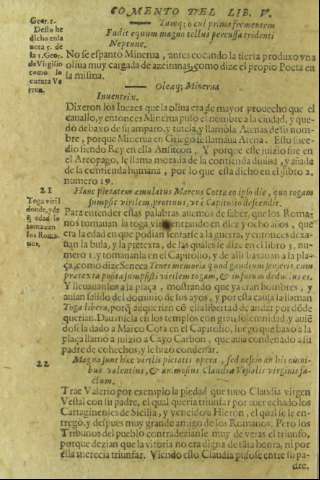 COMENTO DEL LIB. V.
Tuoq; o cui prima frementem
Fudit equum magno tellus percussa tridenti
Neptune.
No se espantò Minerua, antes tocando la tierra produxo vna
oliua muy cargada de azeitunas, como dize el propio Poeta en
la misma.
Oleaq; Minerua
Inuentrix.
Dixeron los Iuezes que la oliua era de mayor prouecho que el
cauallo, y entonces Minerua puso el nombre a la ciudad, y que
dò debaxo de su amparo, y tutela, y llamola Atenas de su nom-
bre, porque Minerua en Griego se llama Atena. Esto suce-
dio siendo Rey en ella Anfitrion, Y porque este juizio fue en
el Areopago, le llama morada de la contienda diuina, y añade
de la contienda humana, por lo que està dicho en el libro 2.
numero 19.
Georg. 1.
Desto he
dicho en la
nota 5. de
la 1. Geor.
de Virgilio
como lo
cuenta Va
rron.
21
Hanc pietatem æmulatus Marcus Cotta eo ipso die, quo togam
sumpsit virilem, protinus, vt è Capitolio descendit.
Toga viril
donde, y de
q̃ edad la
tomauan
los Roma-
nos.
Para entender estas palabras auemos de saber, que los Roma-
nos tomauan la toga viril entrando en diez y ocho años, que
era la edad en que podian ir a la guerra, y entonces dexa-
uan la bula, y la pretexta, de las quales se dixo en el libro 3. nu-
mero 1. y tomauanla en el Capitolio, y de alli baxauan a la pla-
ça, como dize Seneca Tenes memoria quod gaudium senseris, cum
prætexta posita sumpsisti virilem togam, & in forum deductus es.
Y lleuauanlos a la plaça, mostrando que ya eran hombres, y
auian salido del dominio de los ayos, y por esta causa la llaman
Toga libera, porq̃ adquirian cõ ella libertad de andar por dõde
querian. Dauanla en los templos con gran solennidad, y auiẽ
dosela dado a Marco Cota en el Capitolio, luego que baxò a la
plaça llamò a juizio a Cayo Carbon, que auia condenado a su
padre de cohechos, y le hizo condenar.
22
Magna sunt hæc virilis pietatis opera, sed nescio an his omni-
bus valentius, & animosius Claudiæ Vestalis virginis fa-
ctum.
Trae Valerio por exemplo la piedad que tuuo Claudia virgen
Vestal con su padre, el qual queria triunfar por auer echado los
Cartagineses de Sicilia, y vencido a Hieron, el qual se le en-
tregò, y despues muy grande amigo de los Romanos. Pero los
Tribunos del pueblo contradezianle muy de veras el triunfo,
porque dezian que la vitoria no era digna de tãta honra, ni por
ella merecia triunfar. Viendo esto Claudia pusose entre su pa-
dre,